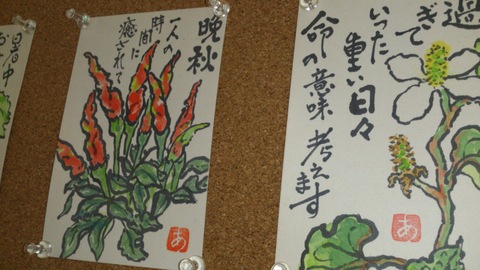 過
ぎて
いった
重い日々
命の意味
考えます
あ
晩秋
一人の
時間に
癒されて
あ
暑中